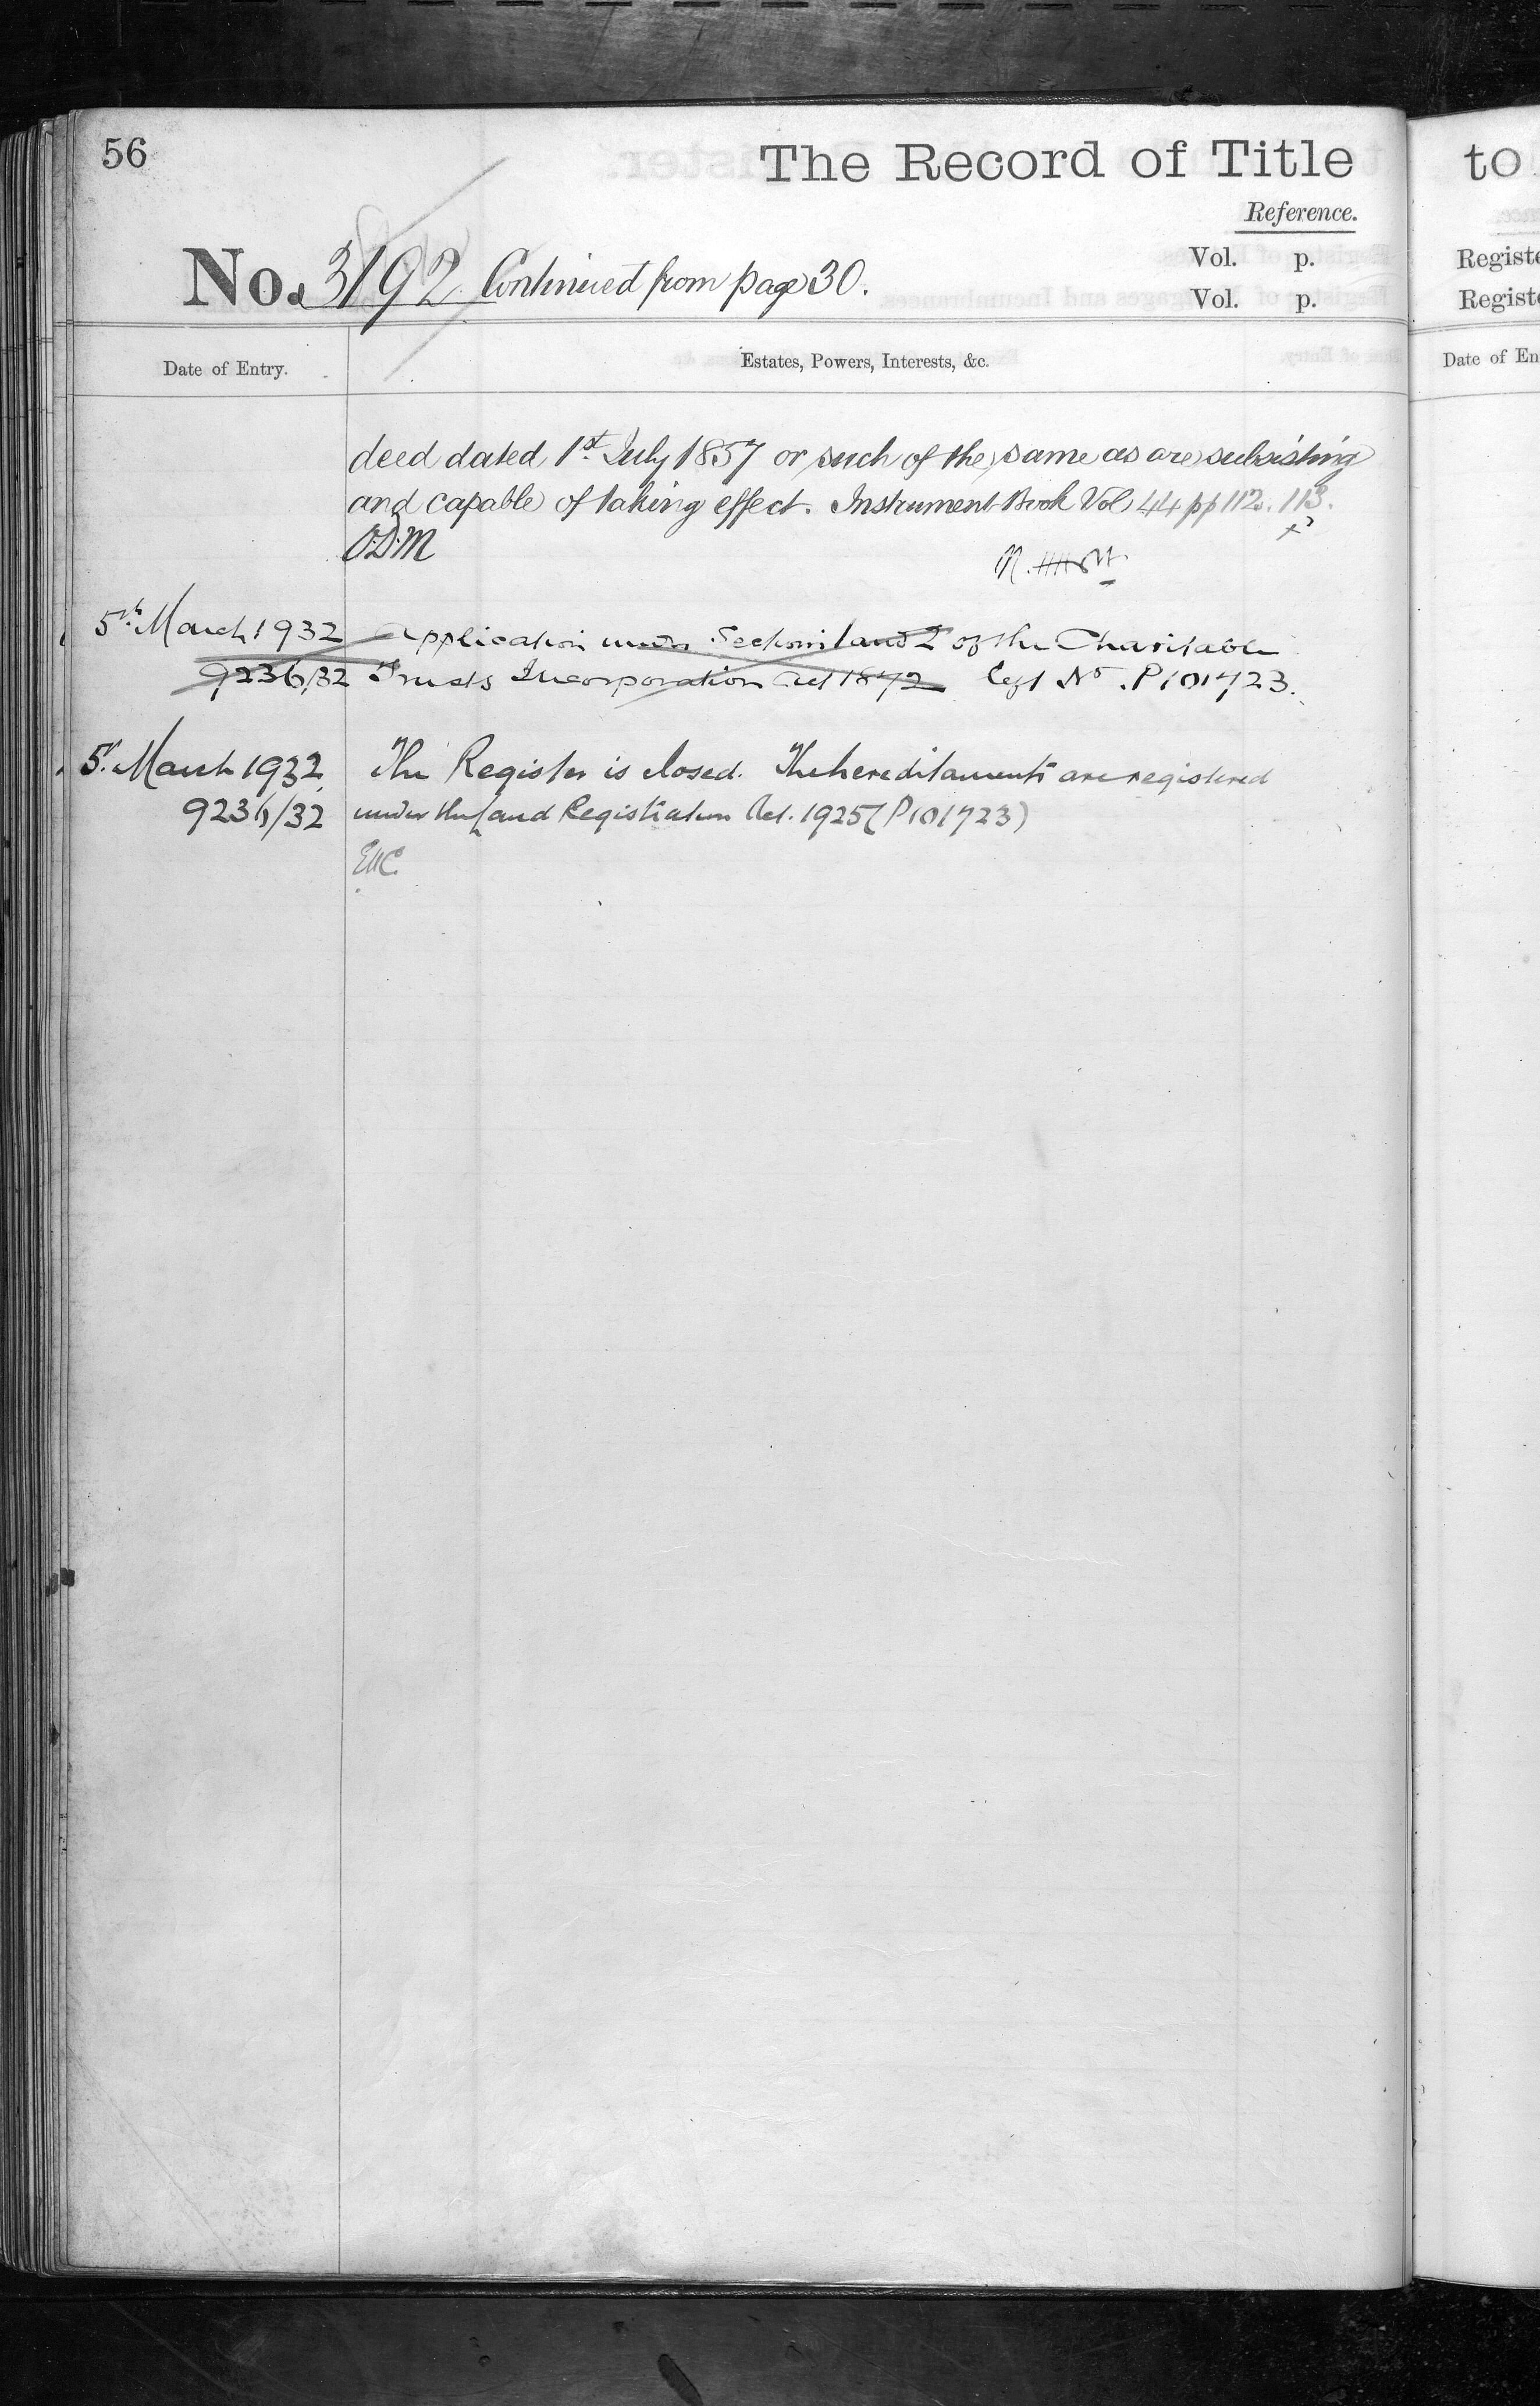 56
The Record of Title
to
Reference.
No. 3192 Continued from page 30.
Vol. p.
Vol. p.
Registe
Registe
Date of Entry.
Estates, Powers, Interests, &c.
Date of En
deed dated 1st July 1857 or such of the same as are subsisting
and capable of taking effect. Instrument Book Vol 44 pp 112. 113.
O.D.M
5th March 1932 Application under Sections 1 and 2 of the Charitable
9236/32 Trusts Incorporation Act 1872 Cert No. P101723.
5. March 1932 The Register is closed. The hereditaments are registered
9236/32 under the Land Registration Act. 1925 (P101723)